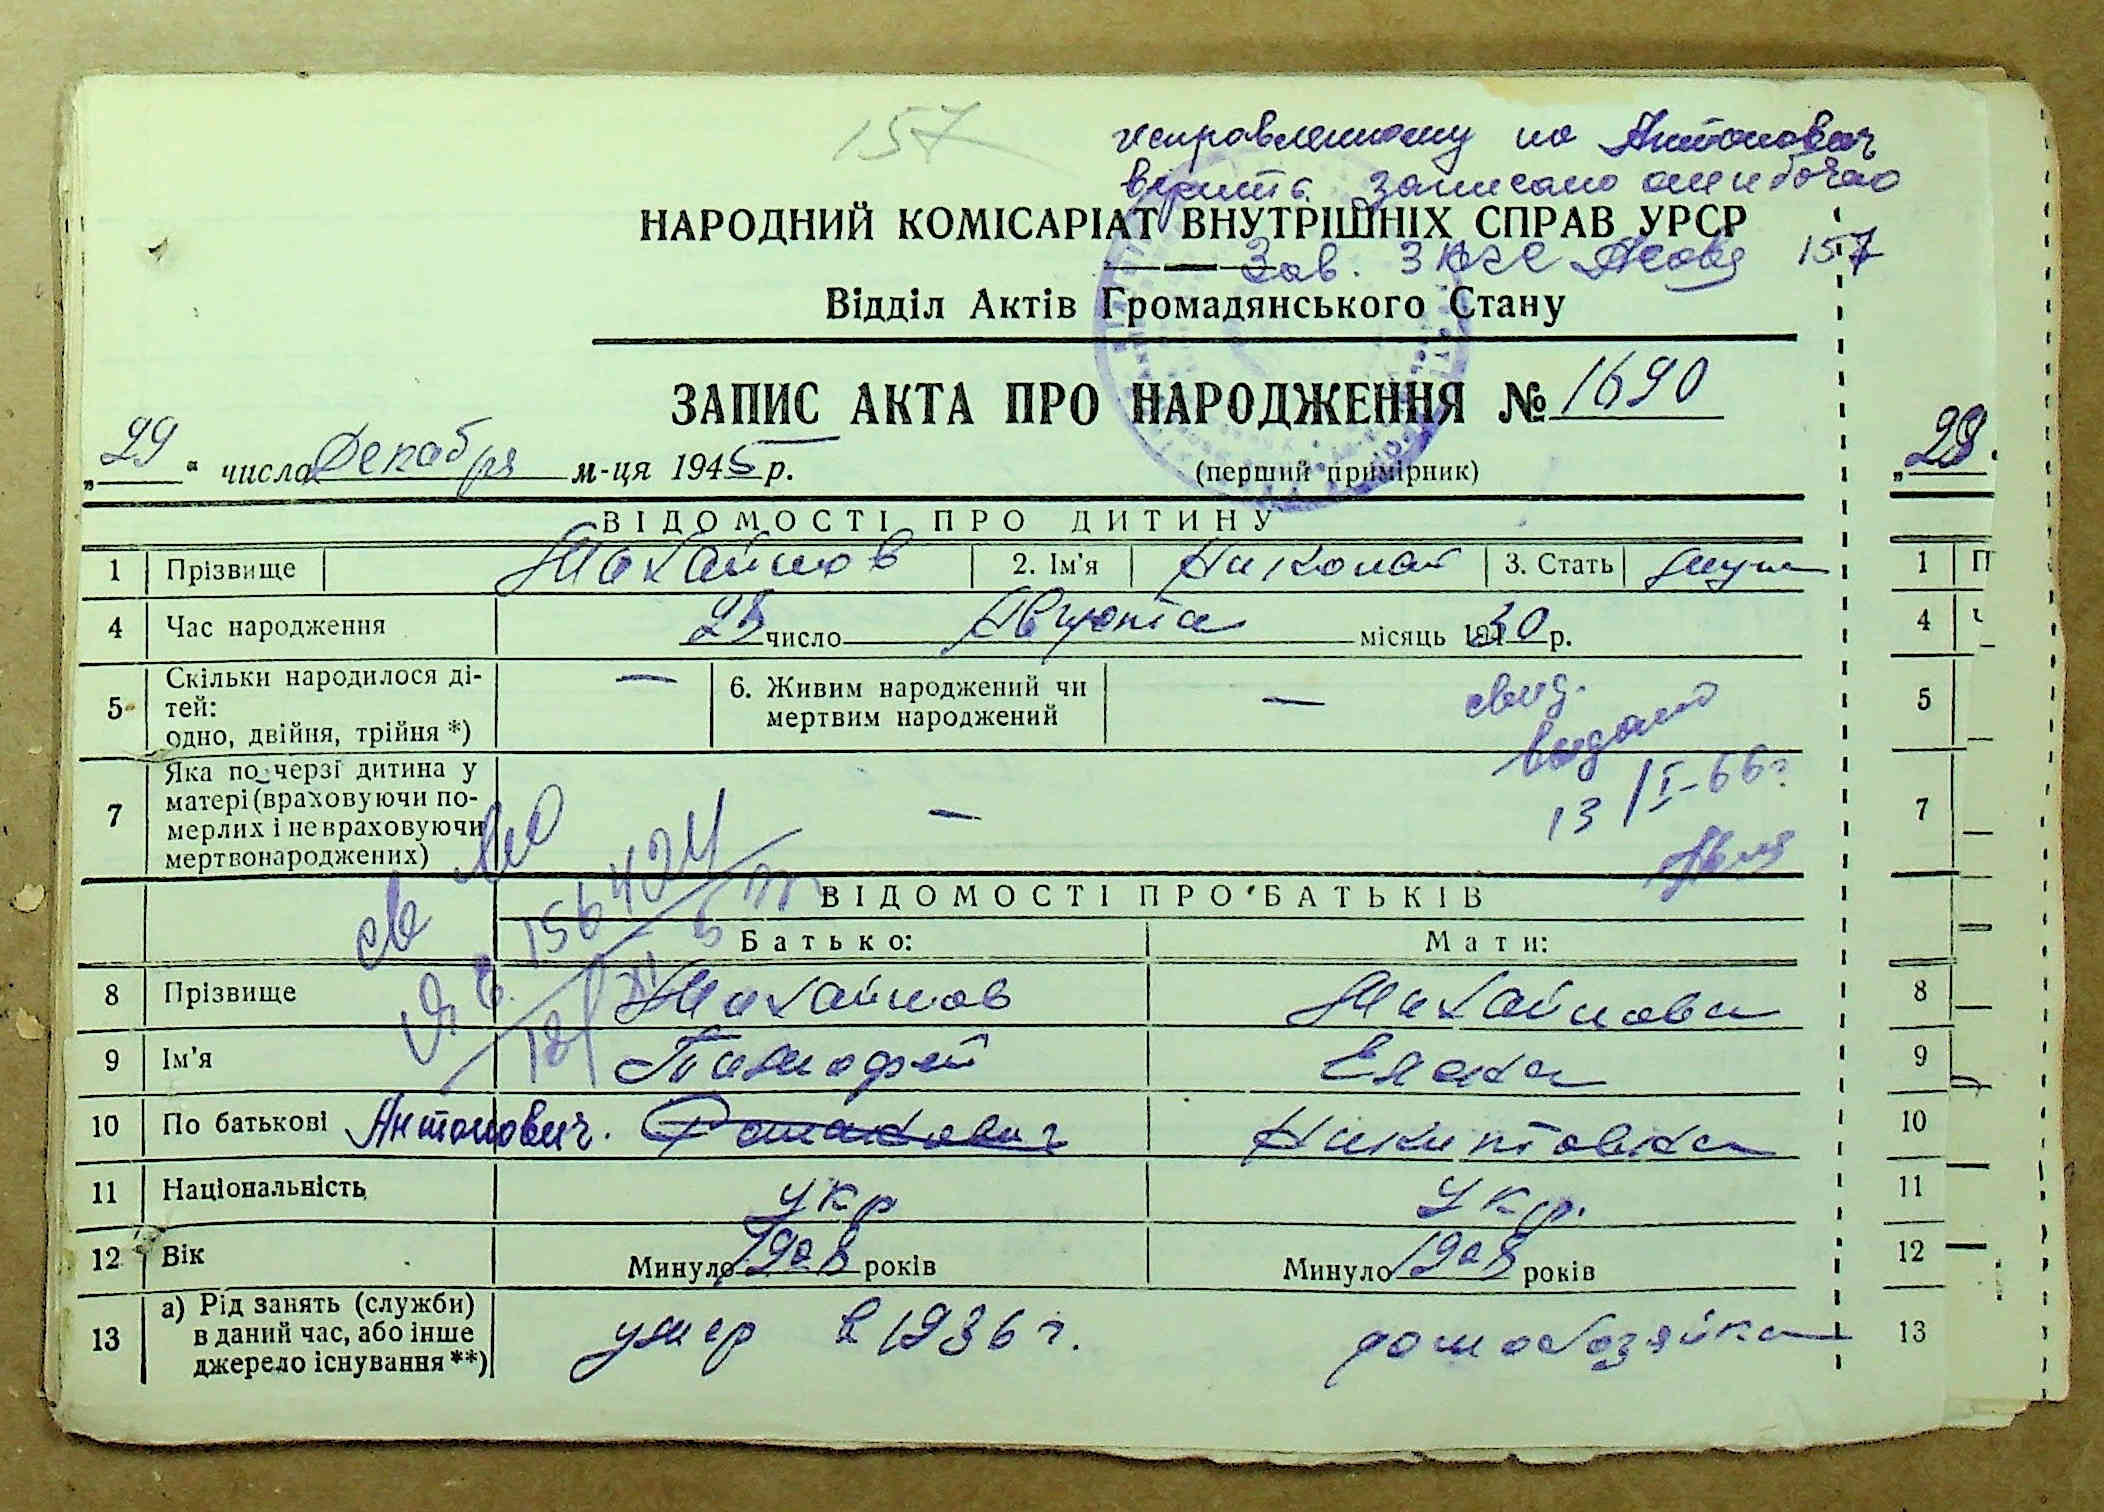 157
исправленному на Антонович
верить записано ошибочно
НАРОДНИЙ КОМІСАРІАТ ВНУТРІШНІХ СПРАВ УРСР
Зав. 157
Відділ Актів Громадянського Стану
ЗАПИС АКТА ПРО НАРОДЖЕННЯ № 1690
„29“ числа Декабря м-ця 1945 р. (перший примірник) „29.
ВІДОМОСТІ ПРО ДИТИНУ
1 Прізвище Михайлов 2. Ім'я Николай 3. Стать муж 1 П
4 Час народження 28 число Августа місяць 1930 р. 4 Ч
5 Скільки народилося дітей: одно, двійня, трійня *) — 6. Живим народжений чи мертвим народжений — 5
свид. выдано 13/I-66г
7 Яка по черзі дитина у матері (враховуючи померлих і не враховуючи мертвонароджених) — 7
156424
ВІДОМОСТІ ПРО БАТЬКІВ
Батько: Мати:
8 Прізвище Михайлов Михайлова 8
9 Ім'я Тимофей Елена 9
10 По батькові Антонович. Романович Никитовна 10
11 Національність укр укр. 11
12 Вік Минуло 1908 років Минуло 1908 років 12
13 а) Рід занять (служби) в даний час, або інше джерело існування **) умер в 1936 г. домохозяйка 13